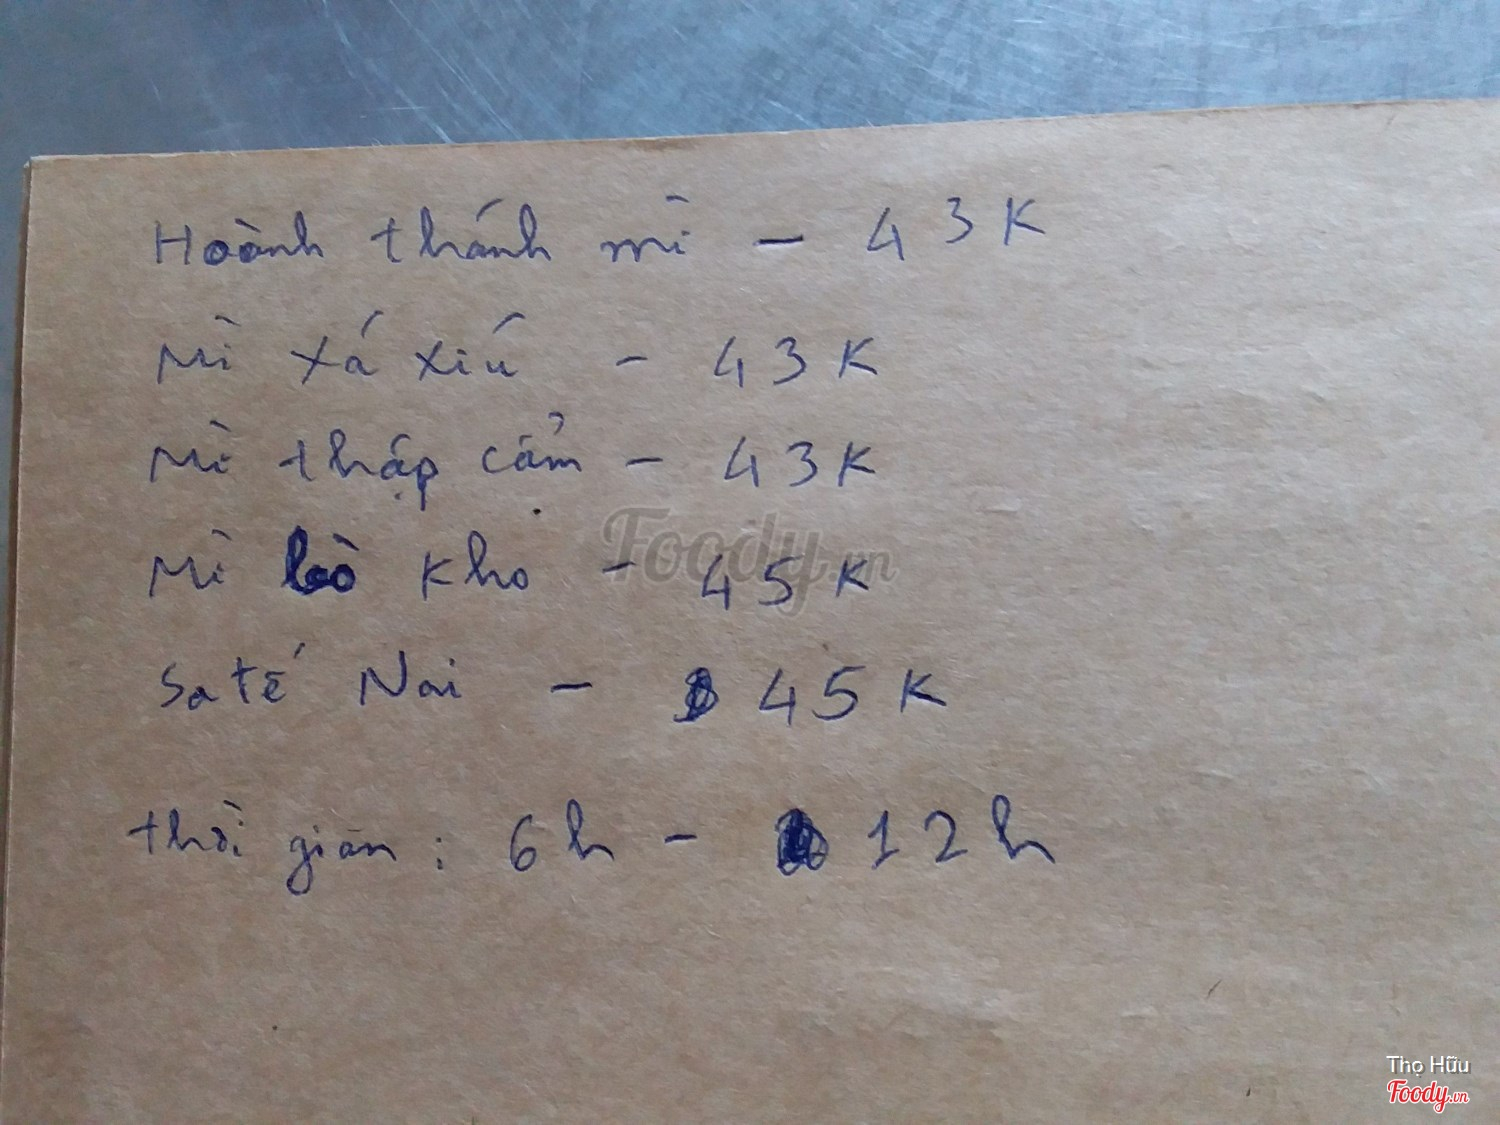 Hoành thánh mì - 43K
Mì xá xíú - 43K
Mì thập cẩm - 43K
Mì bò kho - 45K
Sa tế Nai - 45K
thời gian : 6h - 12h
Foody.vn
Thọ Hữu
Foody.vn